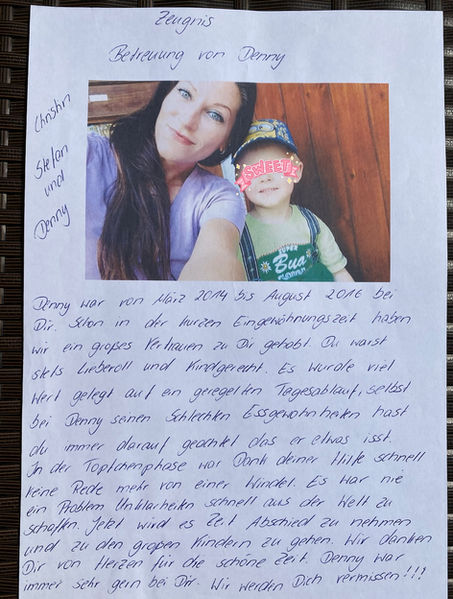 Zeugnis
Betreuung von Denny
Christin
Stefan
und
Denny
SWEET
SUPER
Bua
Denny war von März 2014 bis August 2016 bei
Dir. Schon in der kurzen Eingewöhnungszeit haben
wir ein großes Vertrauen zu Dir gehabt. Du warst
stets Liebevoll und Kindgerecht. Es wurde viel
Wert gelegt auf ein geregelten Tagesablauf, selbst
bei Denny seinen Schlechten Essgewohnheiten hast
du immer darauf geachtet das er etwas isst.
In der Töpfchenphase war Dank deiner Hilfe schnell
keine Rede mehr von einer Windel. Es war nie
ein Problem Unklarheiten schnell aus der Welt zu
schaffen. Jetzt wird es Zeit Abschied zu nehmen
und zu den großen Kindern zu gehen. Wir danken
Dir von Herzen für die schöne Zeit. Denny war
immer sehr gern bei Dir. Wir werden Dich vermissen!!!